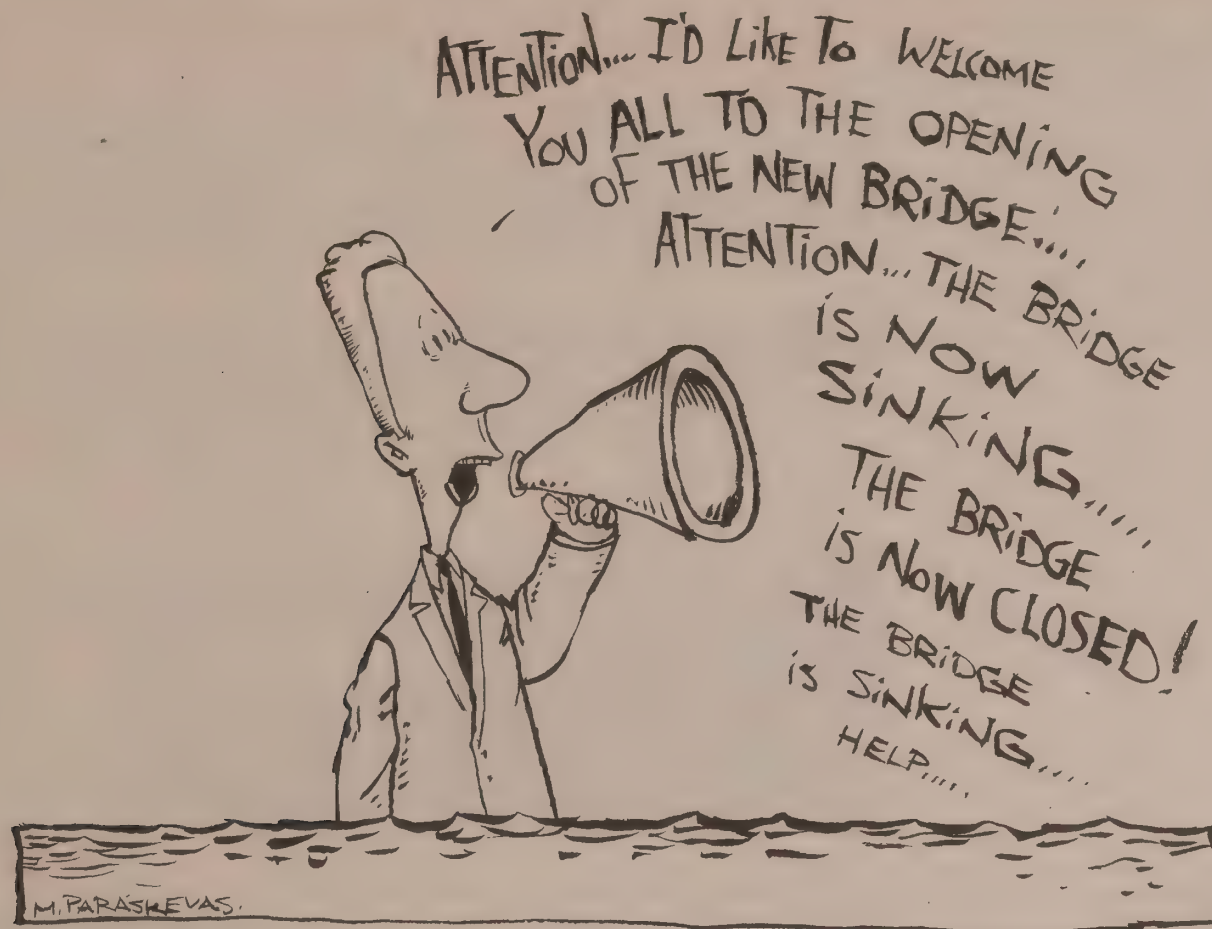 ATTENTiON.... I'D LiKE To WELCOME
YoU ALL TO THE OPENiNG
OF THE NEW BRiDGE.....
ATTENTiON... THE BRiDGE
iS NOW
SiNKiNG.....
THE BRiDGE
iS NOW CLOSED!
THE BRiDGE
iS SiNKiNG.....
HELP.....
M. PARASKEVAS.